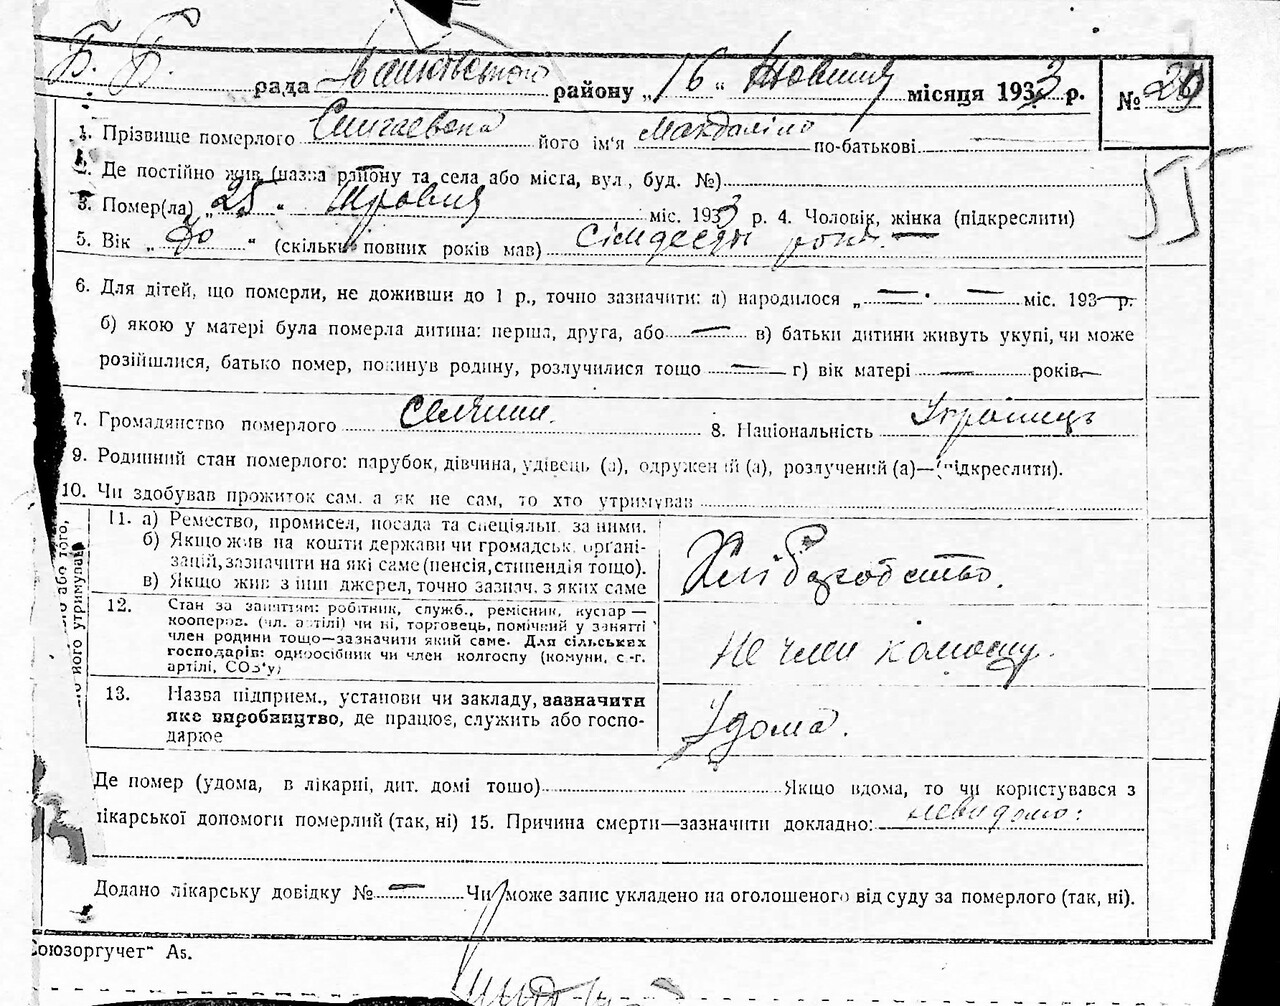 Б. Б. рада районy „16“ Жовтня місяця 1933 р. №
1. Прізвище померлого його ім'я по-батькові
2. Де постійно жив (назва району та села або міста, вул, буд. №)
3. Помер(ла) „25“ травня міс. 1933 р. 4. Чоловік, жінка (підкреслити)
5. Вік „ “ (скільки повних років мав) сімдесят років.
6. Для дітей, що померли, не доживши до 1 р., точно зазначити: а) народилося „ — “ — міс. 193— р.
б) якою у матері була померла дитина: перша, друга, або — в) батьки дитини живуть укупі, чи може
розійшлися, батько помер, покинув родину, розлучилися тощо — г) вік матері — років—
7. Громадянство померлого 8. Національність Українець
9. Родинний стан померлого: парубок, дівчина, удівець (а), одружений (а), розлучений (а)—(підкреслити).
10. Чи здобував прожиток сам, а як не сам, то хто утримував
або того,
його утримував
11. а) Ремество, промисел, посада та спеціяльн. за ними.
б) Якщо жив на кошти держави чи громадськ. органі-
зацій, зазначити на які саме (пенсія, стипендія тощо).
в) Якщо жив з інш джерел, точно зазнач. з яких саме
Хліборобство.
12. Стан за заняттям: робітник, служб., ремісник, кустар—
кооперов. (чл. артілі) чи ні, торговець, помічний у занятті
член родини тощо—зазначити який саме. Для сільських
господарів: одноосібник чи член колгоспу (комуни, с.-г.
артілі, СОЗ'у)
Не член колгоспу.
13. Назва підприєм., установи чи закладу, зазначити
яке виробництво, де працює, служить або госпо-
дарює
Удома.
Де помер (удома, в лікарні, дит. домі тощо) Якщо вдома, то чи користувався з
лікарської допомоги померлий (так, ні) 15. Причина смерти—зазначити докладно: невидомо.
Додано лікарську довідку № — Чи може запис укладено на оголошеного від суду за померлого (так, ні).
Союзоргучет" А5.